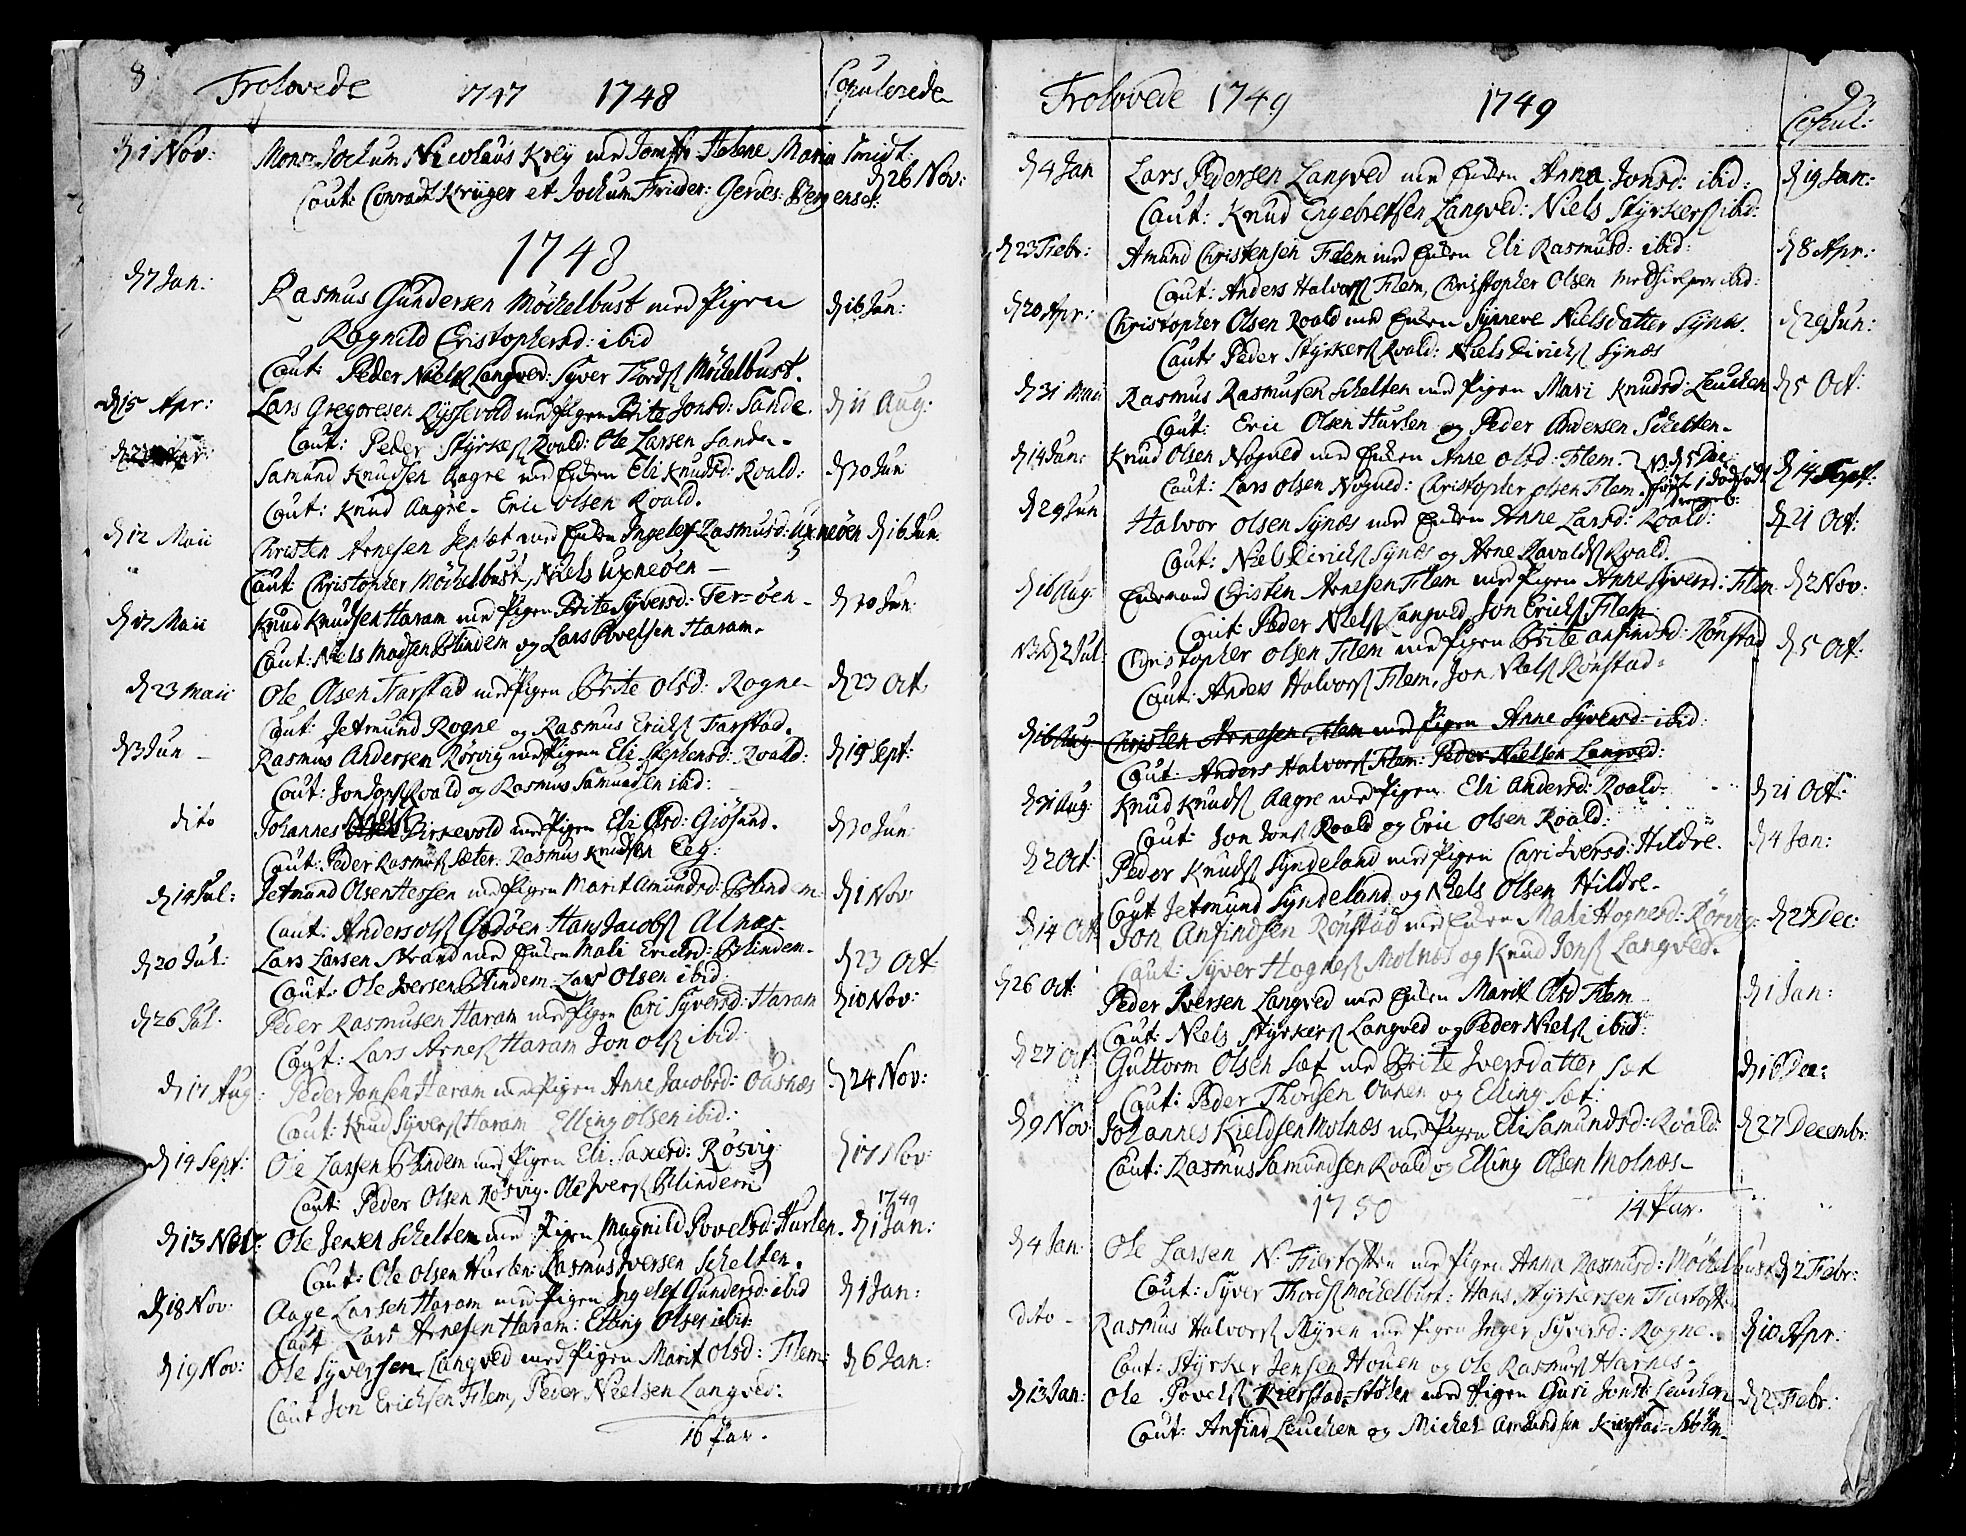 8 Trolovede 1747 1748 Copulerede
d 1 Nov: Monsr Jochum Nicolaus Krey med Jomfr: Helene Maria Smidt. d 26 Nov:
Caut: Conradt Krüger et Jochum Frider: Gerdes: Bergenses:
1748
d 7 Jan: Rasmus Gundersen Möckelbust med Pigen d 16 Jun:
Ragnild Cristophersd: ibid
Caut: Peder Nielss Langved: Syver Thordss Möckelbust.
d 15 Apr: Lars Gregoresen Ryssevold med Pigen Brite Jonsd: Sande. d 11 Aug:
Caut: Peder Styrkess Roald: Ole Larsen Sande-
d 23 Apr: Samund Knudsen Aagre med Enken Eli Knudsd: Roald: d 30 Jun
Caut: Knud Aagre- Eric Olsen Roald.
d 12 Maii Christen Arnesen Seplæt med Enken Ingelef Rasmusd: Uxneöen d 16 Jun:
Caut Christopher Möckelbust, Niels Uxneöen -
d 17 Maii Knud Knudsen Haram med Pigen Brite Syversd: Fer=öen- d 30 Jun:
Caut: Niels Madsen Blindem og Lars Povelsen Haram.
d 23 Maii Ole Olsen Farstad med Pigen Brite Olsd: Rogne- d 23 Oct.
Caut: Jetmund Rogne og Rasmus Erickss Farstad.
d 3 Jun - Rasmus Andersen Rørvig med Pigen Eli Stephensd: Roald: d 19 Sept:
Caut: Jon Jonss Roald og Rasmus Samundsen ibid:
dito Johannes Nielss Dirnevold med Pigen Eli Olsd: Giösund. d 30 Jun:
Caut: Peder Rasmuss Sæter: Rasmus Knudsen Eeg:
d 14 Jul: Jetmund Olsen Hessen med Pigen Marit Amundsd: Blindem: d 1 Nov
Caut: Anders Olss Godöen Hans Jacobss Alnæs-
d 20 Jul: Lars Larsen Strand med Enken Mali Ericksd: Blindem- d 23 Oct
Caut: Ole Iversen Blindem: Lars Olsen ibid:
d 26 Jul. Peder Rasmusen Haram med Pigen Cari Syversd: Haram d 10 Nov:
Caut: Lars Arness Haram Jon Olss ibid:
d 17 Aug: Peder Jonsen Haram med Pigen Anne Jacobsd: Ousnæs d 24 Nov:
Caut: Knud Syverss Haram Elling Olsen ibid:
d 14 Sept: Ole Larsen Blindem med Pigen Eli Saxesd: Røsvig d 17 Nov:
Caut: Peder Olsen Røsvig. Ole Iverss Blindem
d 13 Nov: Ole Jensen Schelten med Pigen Magnild Povelsd: Hurlen. 1749 d 1 Jan:
Caut: Ole Olsen Hurlen: Rasmus Iversen Schelten.
d 18 Nov: Aage Larsen Haram med Pigen Ingelef Gundersd: ibid d 1 Jan:
Caut Lars Arnesen Haram: Elling Olsen ibid:
d 19 Nov: Ole Syversen Langved med Pigen Marit Olsd: Flem: d 6 Jan:
Caut Jon Ericksen Flem, Peder Nielsen Langved:
16 Par.
Trolovede 1749 1749 9 Copul:
d 4 Jan Lars Pedersen Langved med Enken Anna Jonsd: ibid: d 19 Jan:
Caut: Knud Engebretsen Langved: Niels Styrkerss ibid:
d 23 Febr: Amund Christensen Flem med Enken Eli Rasmusd: ibid: d 8 Apr:
Caut: Anders Halvorss Flem, Christopher Olsen Medhielper ibid:
d 20 Apr: Christopher Olsen Roald med Enken Synneve Nielsdatter Synæs. d 29 Jun:
Caut: Peder Styrkerss Roald: Niels Dirickss Synæs
d 31 Maii Rasmus Rasmusen Schelten med Pigen Mari Knudsd: Leuchen d 5 Oct:
Caut: Eric Olsen Hurlen og Peder Andersen Schelten-
d 14 Jun: Knud Olsen Nogved med Enken Anne Olsd: Flem. d 14 Sept:
Caut: Lars Olsen Nogved: Christopher Olsen Flem.
d 29 Jun Halvor Olsen Synæs med Enken Anne Larsd: Roald: d 21 Oct:
Caut: Niels Dirickss Synæs og Arne Ravaldss Roald.
d 16 Aug: Enkemand Christen Arnesen Flem med Pigen Anne Syversd: Flem d 2 Nov:
Caut: Peder Nielss Langved Jon Erickss Flem
NB d 2 Jul: Christopher Olsen Flem med Pigen Brite Anfindsd: Rönstad d 5 Oct:
Caut: Anders Halvorss Flem, Jon Nielss Rønstad=
d 16 Aug Christen Arnesen Flem med Pigen Anne Syversd ibid:
Caut: Anders Halvorss Flem: Peder Nielsen Langved:
d 31 Aug: Knud Knudss Aagre med Pigen Eli Andersd: Roald- d 21 Oct:
Caut: Jon Jonss Roald og Eric Olsen Roald:
d 2 Oct: Peder Knudss Syndeland med Pigen Cari Iversd: Hildre. d 4 Jan:
Caut Jetmund Syndeland og Niels Olsen Hildre-
d 14 Oct: Jon Anfindsen Rønstad med Enken Mali Hognesd: Rörvig: d 27 Dec:
Caut: Syver Hogness Molnæs og Knud Jonss Langved.
d 26 Oct: Peder Iversen Langved med Enken Marit Olsd Flem d 1 Jan:
Caut: Niels Styrkerss Langved og Peder Nielss ibid:
d 27 Oct: Guttorm Olsen Sæt med Brite Iversdatter Sæt d 16 Dec:
Caut: Peder Thordsen Ounen og Elling Sæt:
d 9 Nov: Johannes Kieldsen Molnæs med Pigen Eli Samundsd: Roald: d 27 Decembr:
Caut: Rasmus Samundsen Roald og Elling Olsen Molnæs-
1750 14 Par.
d 4 Jan: Ole Larsen N: Fiertoften med Pigen Anna Rasmusd: Möckelbust d 2 Febr:
Caut: Syver Thordss Möckelbust: Hans Styrkersen Fiertoft:
dito - Rasmus Halvorss Myren med Pigen Inger Syversd: Rogne. d 10 Apr:
Caut: Styrker Jensen Houen og Ole Rasmuss Harnes-
d 13 Jan: Ole Povelss Kierstad=Stølen med Pigen Guri Jonsd: Leuchen d 2 Febr:
Caut: Anfind Leuchen og Michel Amundsen Kierstad=Stølen-